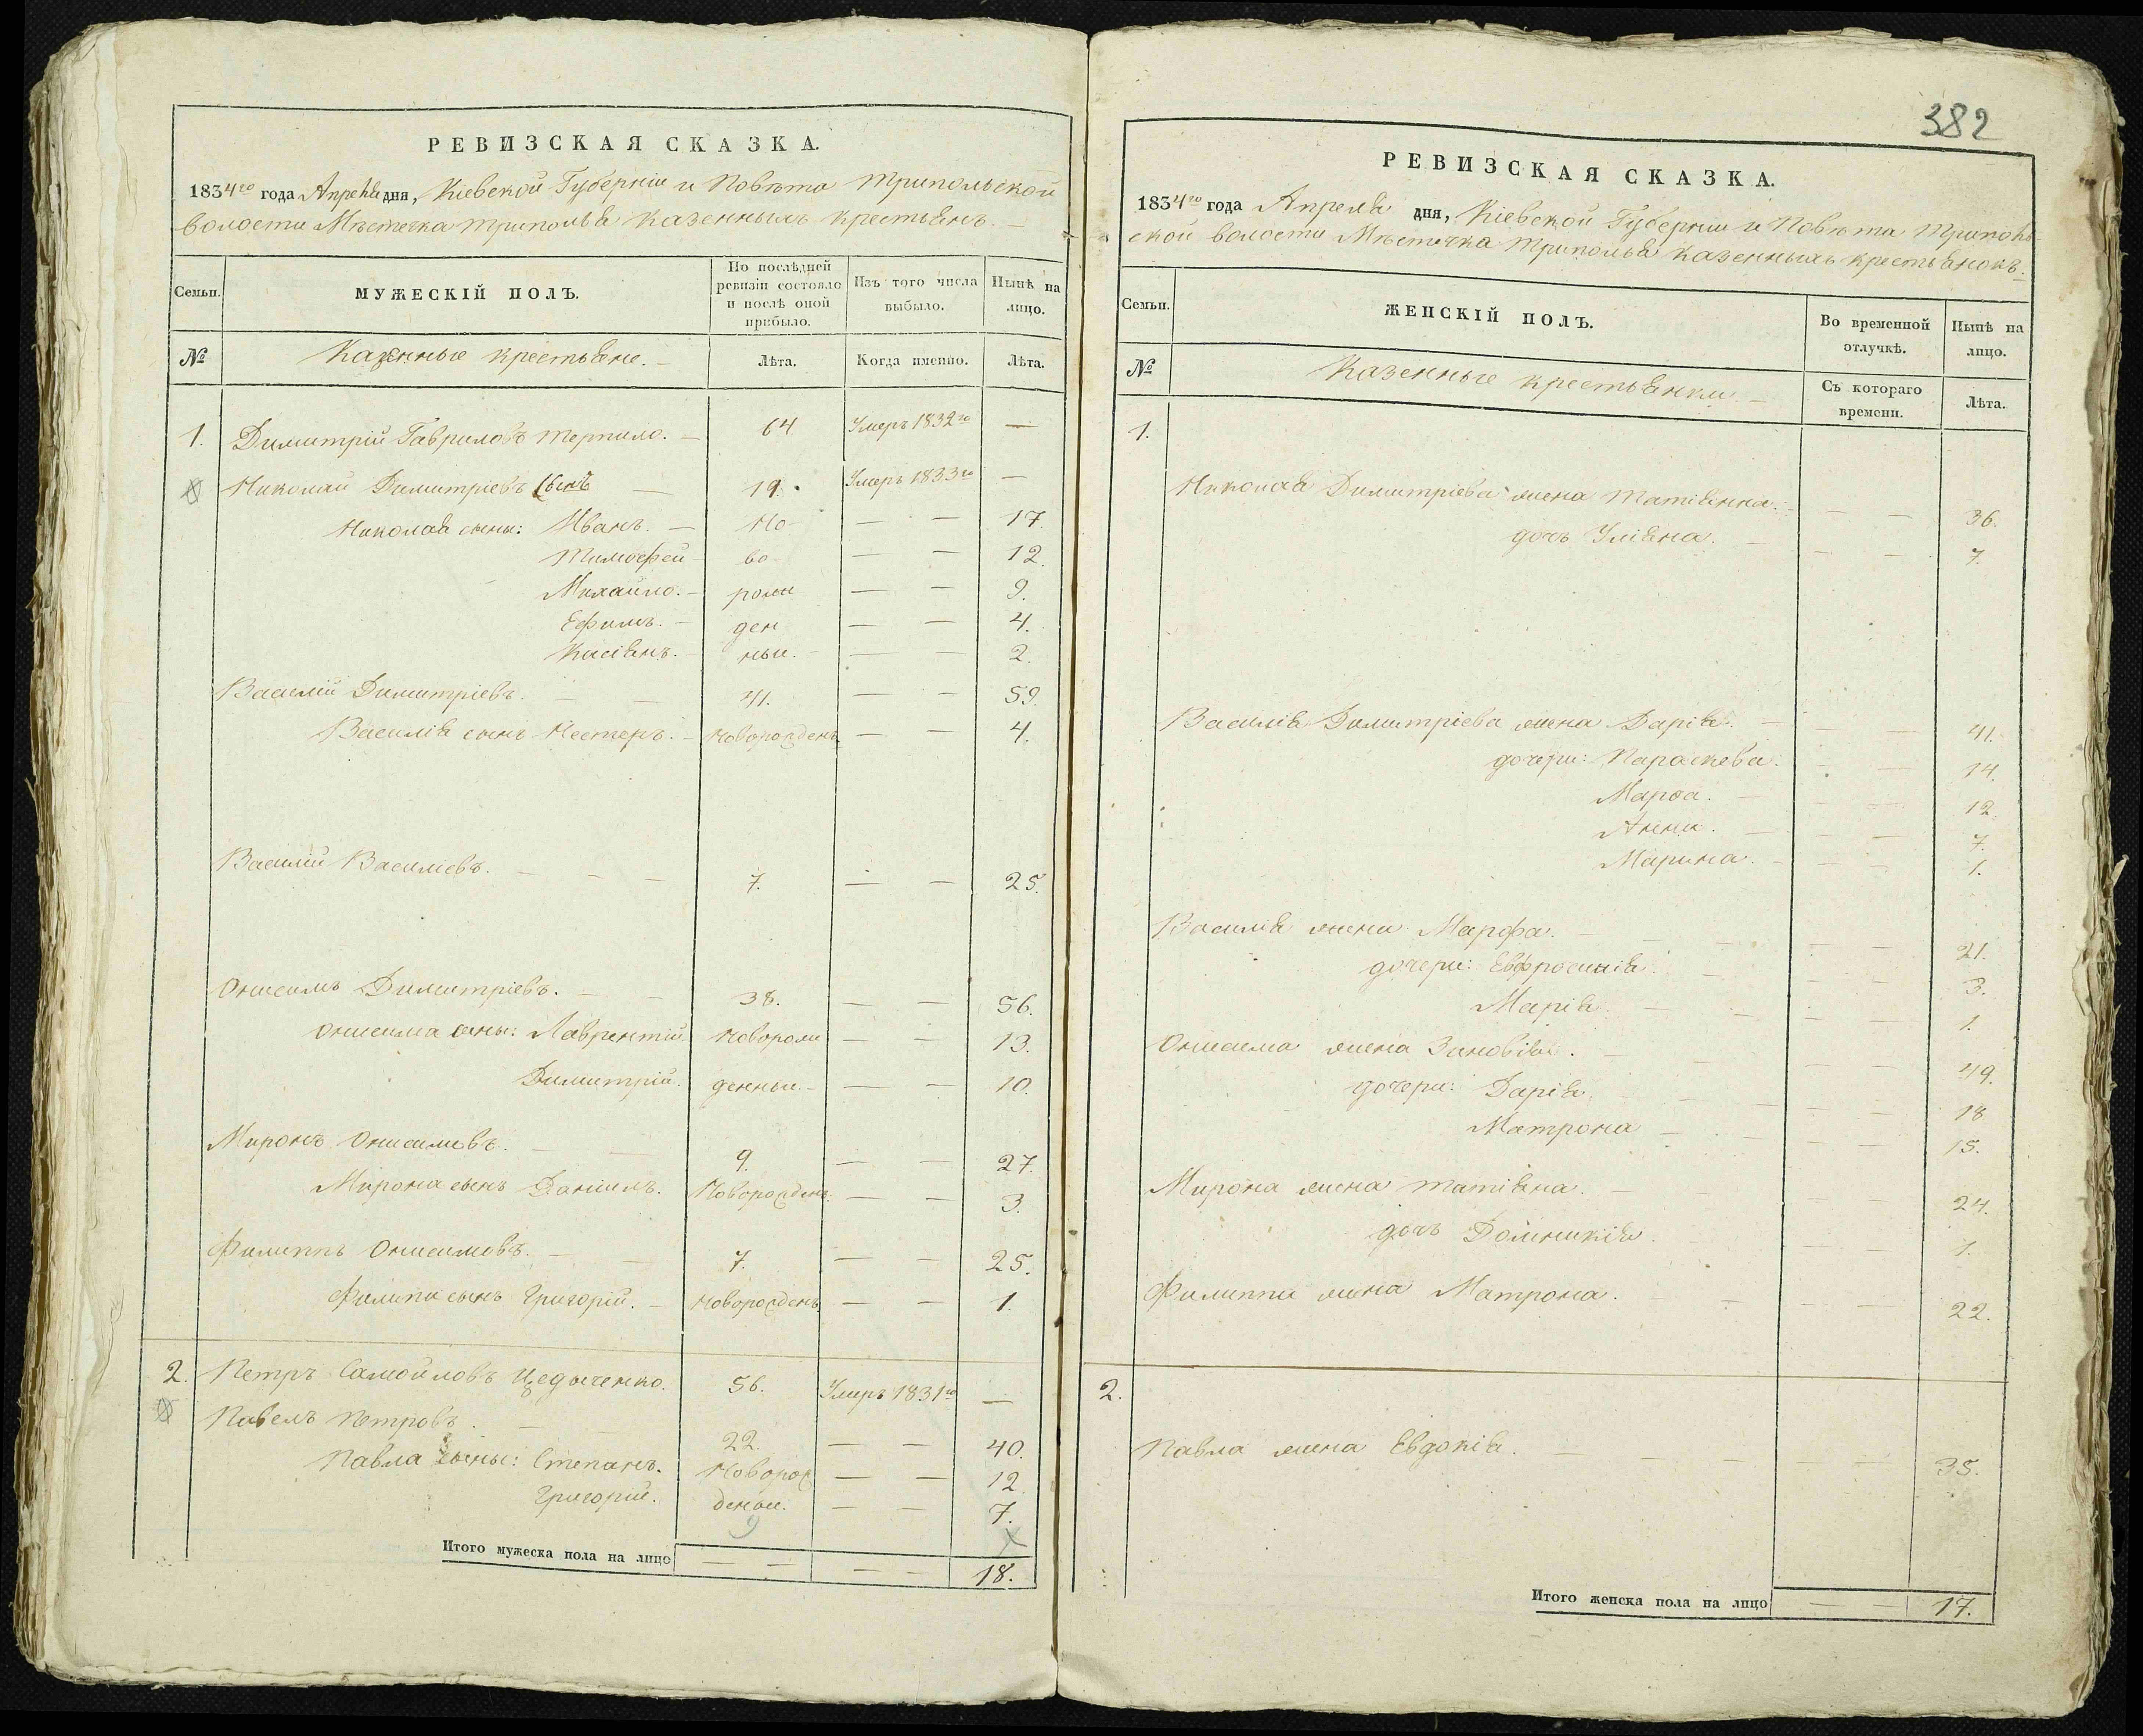 РЕВИЗСКАЯ СКАЗКА.
1834го года Апреля дня, Кіевской Губерніи и Повѣта Трипольской
волости Мѣстечка Триполья Казенныхъ крестьянъ.
Семьи. МУЖЕСКІЙ ПОЛЪ. По послѣдней ревизіи состояло и послѣ оной прибыло. Изъ того числа выбыло. Нынѣ на лицо.
№ Казенные крестьяне. Лѣта. Когда именно. Лѣта.
1. Димитрій Гавриловъ Терпило. — 64 Умеръ 1832го —
Николай Димитріевъ Сынъ — 19. Умеръ 1833го —
Николая сыны: Иванъ. — Но — — 17.
Тимофей — во — — 12.
Михайло. — рож — — 9.
Ефимъ. — ден — — 4.
Касіянъ. — ныи. — — 2.
Василій Димитріевъ. — 41. — — 59.
Василія сынъ Нестеръ. — Новорожденъ — — 4.
Василій Василіевъ. — — — 7. — — 25.
Онисимъ Димитріевъ. — — 38. — — 56.
Онисима сыны: Лаврентій Еоворож — — 13.
Димитрій. денныи — — — 10.
Миронъ Онисимовъ. — — 9. — — 27.
Мирона сынъ Даніилъ. Новорожденъ. — — 3.
Филиппъ Онисимовъ. — — 7. — — 25.
Филипа сынъ Григорій. — Новорожденъ — — 1.
2. Петръ Самойловъ 56. Умеръ 1831го —
Павелъ Петровъ. — 22. — — 40.
Павла сыны: Степанъ. Новорож — — 12.
Григорій. деныи. — — 7.
Итого мужеска пола на лицо — — — — 18.
382
РЕВИЗСКАЯ СКАЗКА.
1834го года Апреля дня, Кіевской Губерніи и Повѣта Триполь-
ской волости Мѣстечка Триполья Казенныхъ крестьянокъ.
Семьи. ЖЕНСКІЙ ПОЛЪ. Во временной отлучкѣ. Нынѣ на лицо.
№ Казенные крестьянки. — Съ котораго времени. Лѣта.
1.
Николая Димитріева жена Татіянна. — — — 36.
дочь Уліяна. — — — 7.
Василія Димитріева жена Дарія. — — — 41.
дочери: Параскева. — — 14.
Марѳа. — — — 12
Анна. — — — 7.
Марина. — — — 1.
Василія жена Марфа. — — — 21.
дочери: Евфросинія — — — 3.
Марія. — — — 1.
Онисима жена Зиновія. — — — 49.
дочери: Дарія. — — — 18
Матрона — — — 15.
Мирона жена Татіяна. — — — 24.
дочь Домникія. — — 1.
Филиппа жена Матрона. — — — 22.
2.
Павла жена Евдокія. — — — 35.
Итого женска пола на лицо — — 17.